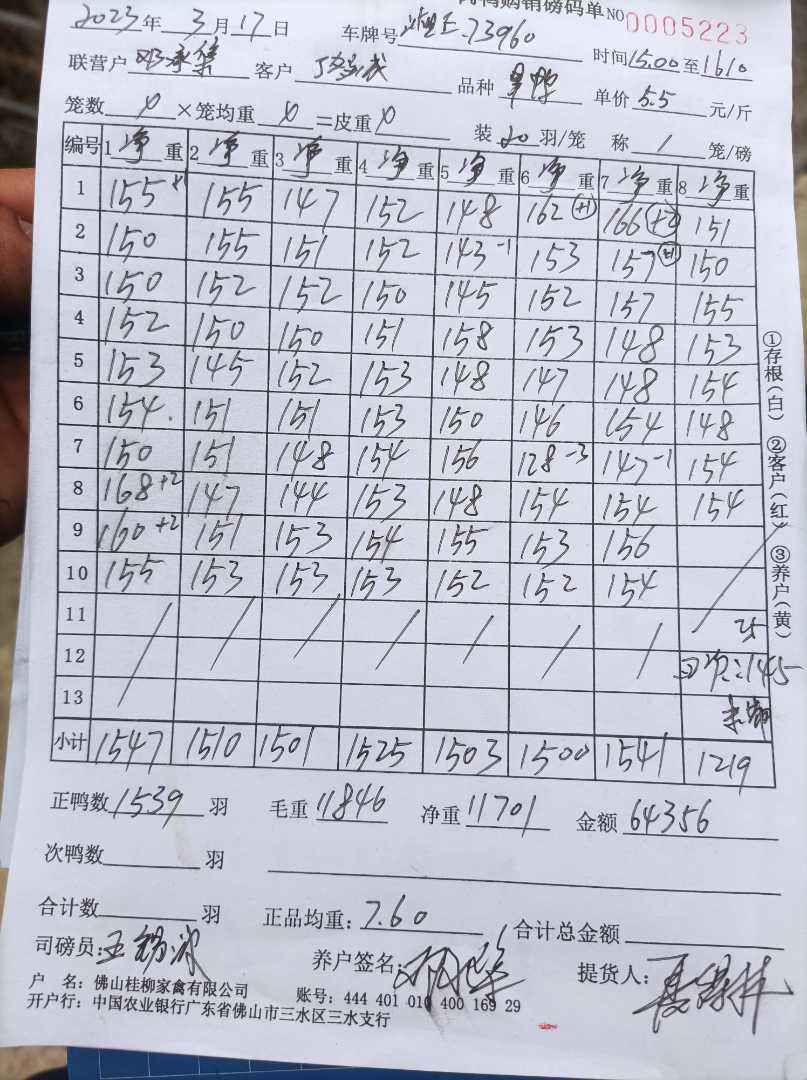 鸭购销磅码单 NO 0005223
2023年3月17日 车牌号 73960
联营户 客户 品种 单价 5.5 元/斤 时间 15.00 至 1610
笼数 0 ×笼均重 0 =皮重 0 装 20 羽/笼 称 1 笼/磅
编号 1 净 重 2 净 重 3 净 重 4 净 重 5 净 重 6 净 重 7 净 重 8 净 重
1 155 155 147 152 148 162 +1 166 151
2 150 155 151 152 143 -1 153 157 +1 150
3 150 152 152 150 145 152 157 155
4 152 150 150 151 158 153 148 153
5 153 145 152 153 148 147 148 154
6 154. 151 151 153 150 146 154 148
7 150 151 148 154 156 128 -3 147 -1 154
8 168 +2 147 144 153 148 154 154 154
9 160 +2 151 153 154 155 153 156
10 155 153 153 153 152 152 154
11
12 145
13
小计 1547 1510 1501 1525 1503 1500 1541 1219
正鸭数 1539 羽 毛重 11846 净重 11701 金额 64356
次鸭数 羽
合计数 羽 正品均重: 7.60 合计总金额
司磅员: 养户签名: 提货人:
户 名: 佛山桂柳家禽有限公司 账号: 444 401 010 400 169 29
开户行: 中国农业银行广东省佛山市三水区三水支行
①存根(白) ②客户(红) ③养户(黄)